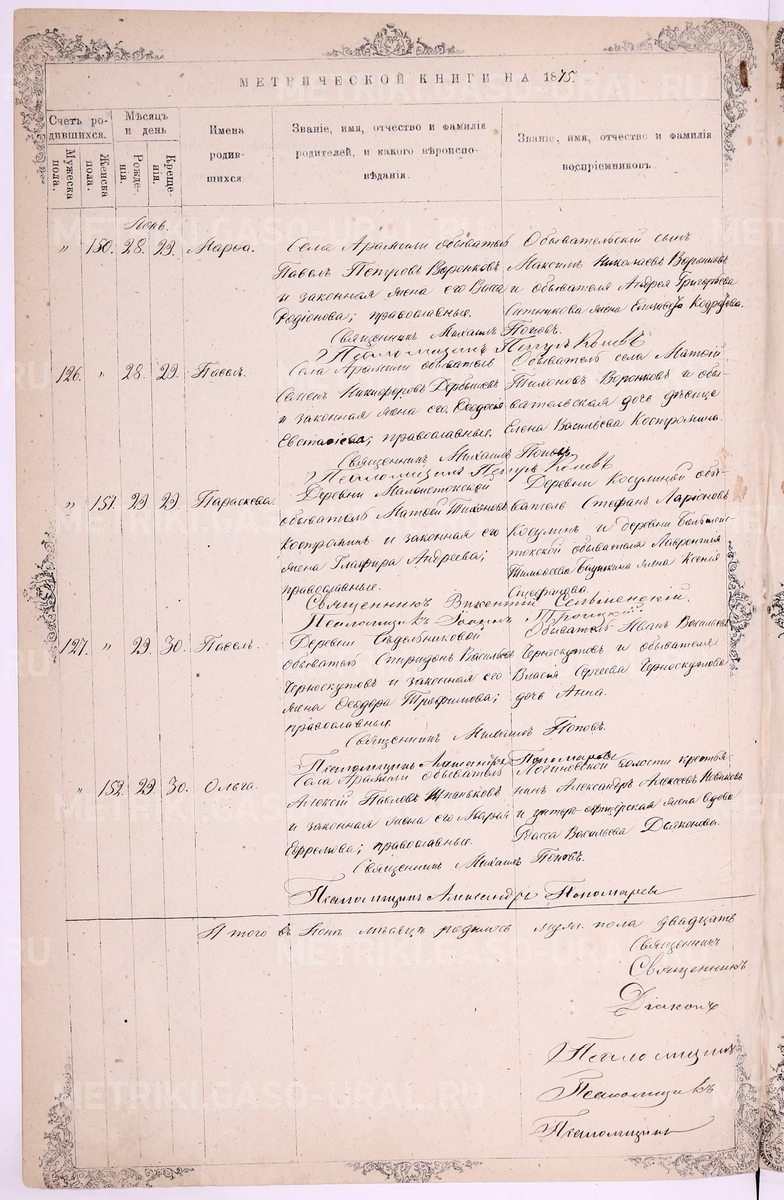 МЕТРИЧЕСКОЙ КНИГИ НА 1875.
Счетъ ро-
дившихся.
Мужеска пола.
Женска пола.
Мѣсяцъ
и день
Рожде-
нія.
Креще-
нія.
Имена
родив-
шихся.
Званіе, имя, отчество и фамилія
родителей, и какого вѣроиспо-
вѣданія.
Званіе, имя, отчество и фамилія
воспріемниковъ.
Іюнь.
" 150. 28. 29. Марѳа.
Села Арамили обыватель
Павелъ Петровъ Воронковъ
и законная жена его Васса
Родіонова; православные.
Обывательскій сынъ
Максимъ Николаевъ Воронковъ
и обывателя Андрея Григорьева
Ситникова жена Елизавета
Священникъ Михаилъ Поповъ.
Псаломщикъ Петръ
126. " 28. 29. Павелъ.
Села Арамили обыватель
Семенъ Никифоровъ
и законная жена его Ѳеодосія
Евстаѳіева; православные.
Обыватель села Матвей
Тихоновъ Воронковъ и обы-
вательская дочь дѣвица
Елена Васильева Костромина.
Священникъ Михаилъ Поповъ.
Псаломщикъ Петръ
" 151. 29 29 Параскева.
Деревни Малоистокской
обыватель Матвей Тихоновъ
Костроминъ и законная его
жена Глафира Андреева;
православные.
Деревни Косулиной обы-
ватель Стефанъ Ларіоновъ
Косулинъ и деревни
обывателя Лаврентія
Тимоѳеева жена Ксенія
Стефанова.
Священникъ Викентій Сельменскій.
Псаломщикъ Іоаннъ Троицкій.
127. " 29 30. Павелъ.
Деревни Сѣдельниковой
обыватель Спиридонъ Васильевъ
Черноскутовъ и законная его
жена Ѳеодора Трофимова;
православные.
Обыватель Иванъ Васильевъ
Черноскутовъ и обывателя
Власія Сергеева Черноскутова
дочь Анна.
Священникъ Михаилъ Поповъ.
Псаломщикъ Александръ Пономаревъ
" 152. 29 30. Ольга.
Села Арамили обыватель
Алексій Павловъ Шпаньковъ
и законная жена его Марья
Ефремова; православные.
Логиновской волости крестья-
нинъ Александръ Алексеевъ Новиковъ
и унтеръ-офицерская жена вдова
Васса Васильева Дьяконова.
Священникъ Михаилъ Поповъ.
Псаломщикъ Александръ Пономаревъ
Итого въ Іюнѣ мѣсяцѣ родилось муж. пола двадцать
Священникъ
Священникъ
Діаконъ
Псаломщикъ
Псаломщикъ
Псаломщикъ